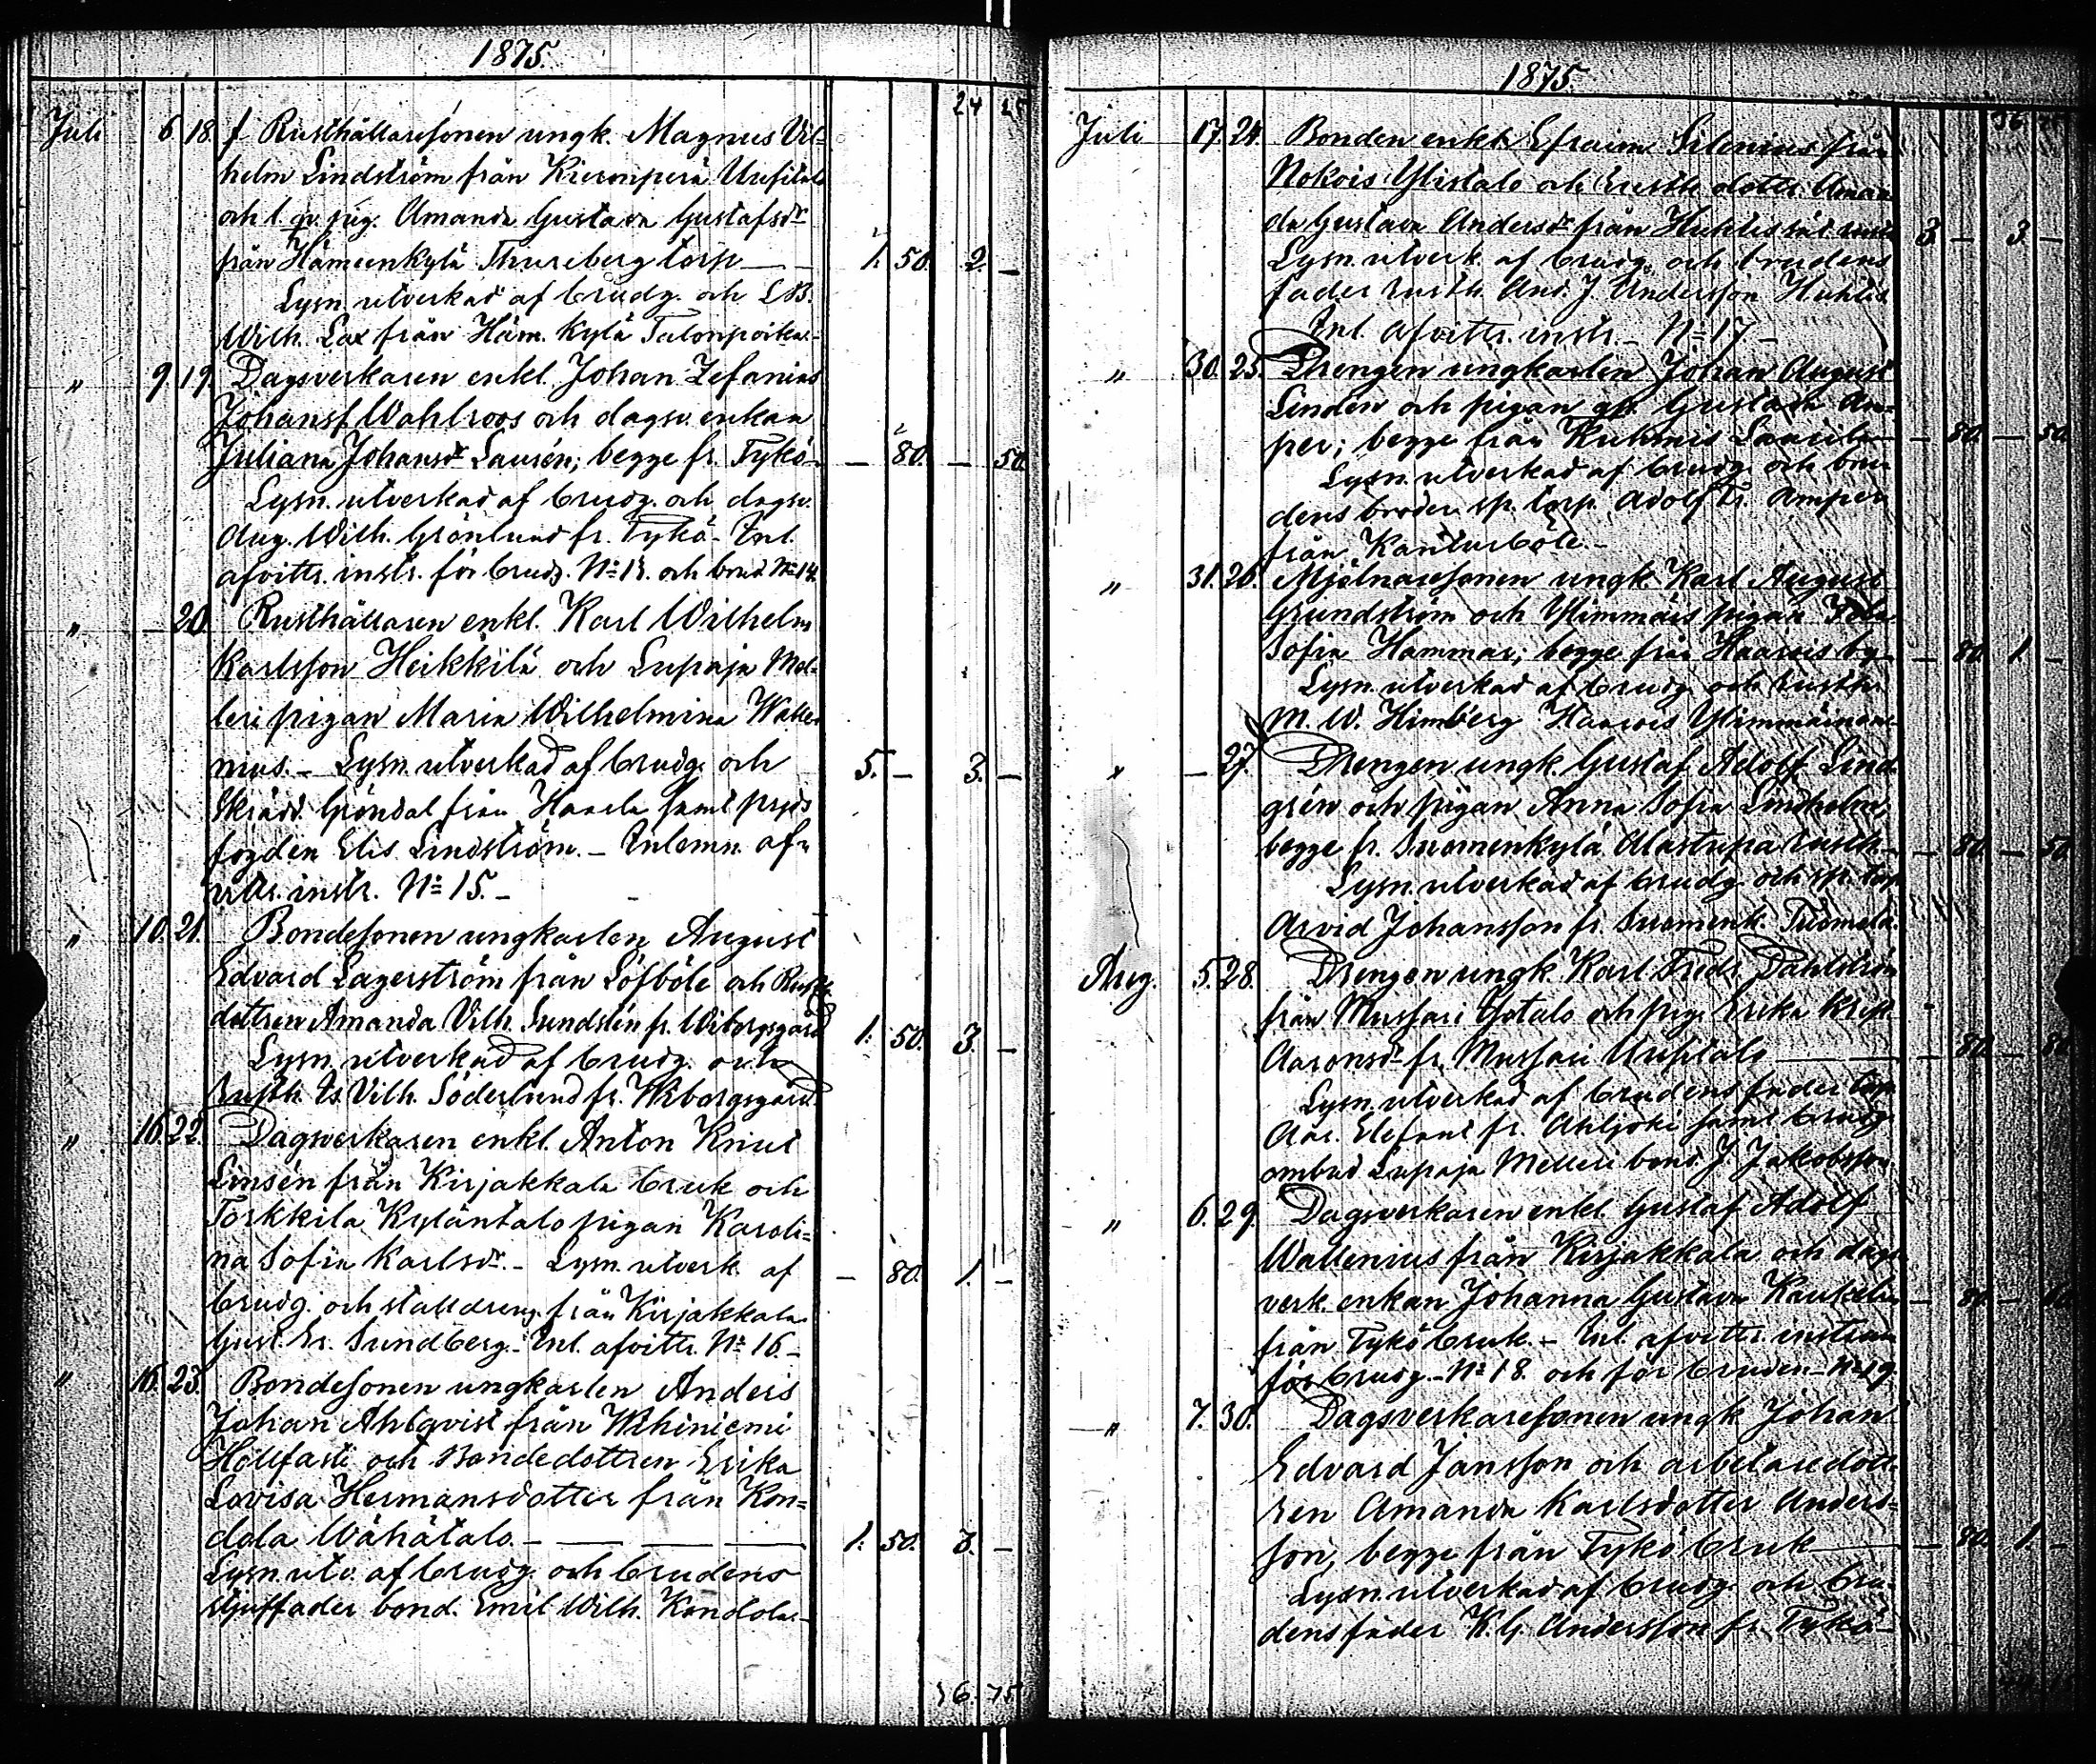 1875.
24 25
Juli 6 18. f Rusthållaresonen ungk. Magnus Vil-
helm Lindström från Kieronperä Uusitalo
och l. qv. pig. Amanda Gustava Gustafsdr
från Hämeenkylä Thureberg torp — — 1. 50. 2. —
Lysn. utverkad af brudg. och LB.
Wilh. Lax från Häm. kylä Talonpoika.-
„ 9. 19. Dagsverkaren enkl. Johan Zefanias
Johansf Wahlroos och dagsv. enkan
Juliana Johansdr Laurén; begge fr. Tykö - — 80. — 50.
Lysn. utverkad af brudg. och dagsv.
Aug. Wilh. Grönlund fr. Tykö - Inl.
afvittr. instr. för brudg. No 13. och brud No 14.
„ — 20. Rusthållaren enkl. Karl Wilhelm
Karlsson Heikkilä och Lupaja Mel-
leri pigan Maria Wilhelmina Walle
nius. - Lysn. utverkad af brudg. och 5. — 3. —
Skrädd. Gröndal från Haarla samt
fogden Elis Lindström. - Inlemn. af-
vittr. instr. No 15. -
„ 10. 21. Bondesonen ungkarlen August
Edvard Lagerström från Löfböle och Rusth.
dottren Amanda Vilh. Sundstén fr. Wiborgsgård 1. 50. 3. —
Lysn. utverkad af brudg. och
rusth. Is. Vilh. Söderlund fr. Wiborgsgård.
„ 16. 22. Dagsverkaren enkl. Anton Knut
Linsén från Kirjakkala bruk och
Torkkila Kyläntalo pigan Karoli-
na Sofia Karlsdr. - Lysn. utverk. af — 80. 1. —
brudg. och stalldreng. från Kirjakkala
Gust. Er. Sundberg. - Inl. afvittr. No 16. -
„ 16. 23. Bondesonen ungkarlen Anders
Johan Ahlqvist från Wihiniemi
Hollfasti och Bondedottren Erika
Lovisa Hermansdotter från Kon-
dola Wähätalo. — — — — 1. 50. 3. —
Lysn. utv. af brudg. och brudens
stjuffader bond. Emil Wilh. Kondola. -
36. 75
1875.
36 75
Juli 17. 24. Bonden enkl. Efraim Silenius från
Nokois Ylistalo och rusth. dottr. Aman
da Gustava Andersdr från Huhtis 3. — 3 —
Lysn. utverk. af brudg. och brudens
fader rusth. And. J. Andersson Huhtis.
Inl. afvittr. instr. - No 17 -
„ 30. 25. Drengen ungkarlen Johan August
Lindén och pigan qv. Gustava Am-
per; begge från Kuhmis Laurila — — 80. — 50.
Lysn. utverkad af brudg. och bru
dens broder sp. torp. Adolf Fr. Amper
från Kanturböle. -
„ 31. 26. Mjölnaresonen ungk. Karl August
Grundström och Ylimmäis pigan
Sofia Hammar; begge från Haarois by — — 80. 1. —
Lysn. utverkad af brudg. och rusth.
M. W. Himberg Haarois Ylimmäinen
„ — 27. Drengen ungk. Gustaf Adolf Lind-
grén och pigan Anna Sofia Lindholm;
begge fr. Suomenkylä Alastupa rusth. — — 80. — 50.
Lysn. utverkad af brudg. och sp. torp.
Arvid Johansson fr. Suomenk. Tuomola.
Aug. 5. 28. Drengen ungk. Karl Fredr. Dahlström
från Mussari Ylötalo och pig. Erika Krist.
Aaronsdr fr. Mussari Uusitalo — — 80. — 80.
Lysn. utverkad af brudens fader torp.
Aar. Elefant fr. Ahljoki samt brudg.
ombud Lupaja Melleri bond. J. Jakobsson
„ 6. 29. Dagsverkaren enkl. Gustaf Adolf
Wallenius från Kirjakkala och dags-
verk. enkan Johanna Gustava — 80. —
från Tykö bruk. - Inl. afvittr. instrum.
för brudg. - No 18. och för bruden - No 19.
„ 7. 30. Dagsverkaresonen ungk. Johan
Edvard Jansson och arbetaredott-
ren Amanda Karlsdotter Anders-
son, begge från Tykö bruk — — 80. 1. —
Lysn. utverkad af brudg. och bru-
dens fader K. G. Andersson fr. Tykö -